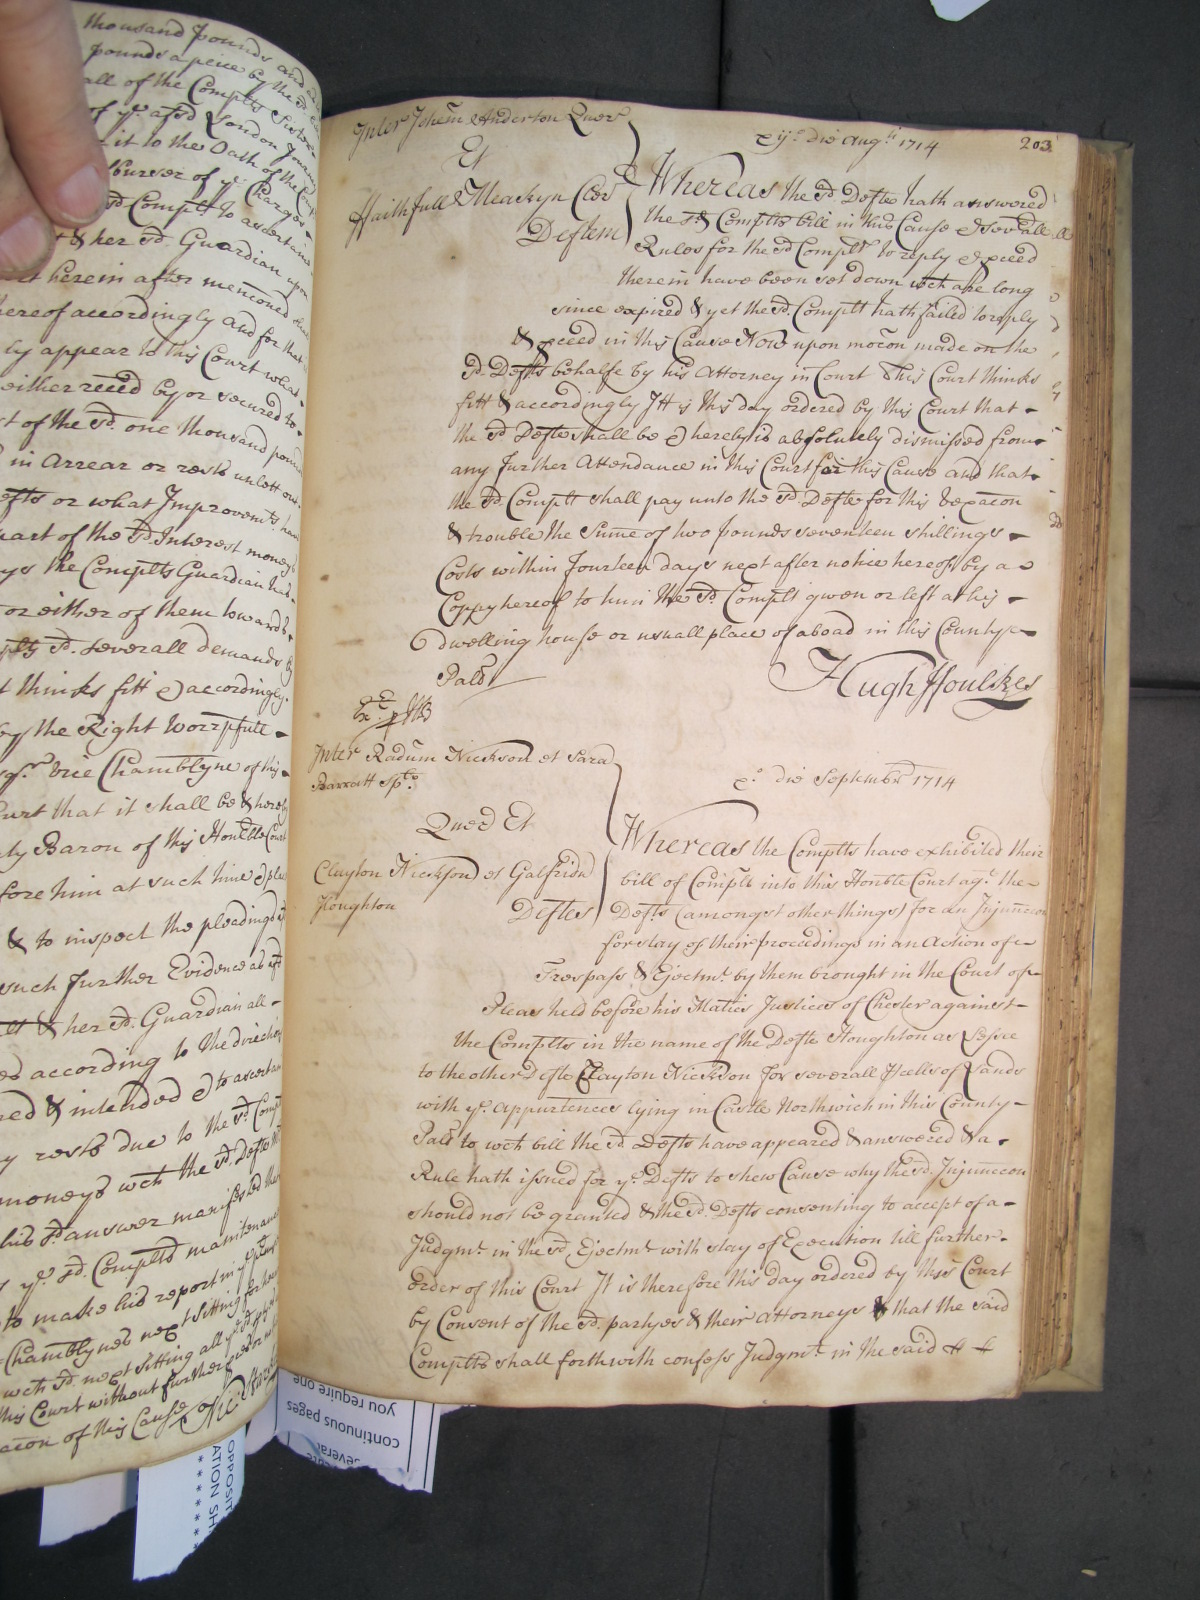 thousand pounds and
pounds a peice by the sd.
all of the Complts Sister
of ye. afsd London
it to the Oath of the
of ye. Charges
sd Complt to ascertaine
& her sd. Guardian upon
herein after menconed
hereof accordingly and for that
ly appear to this Court what
either reced by or secured to
t of the sd. one thousand pounds
in Arrear or rests unlett out
efts or what Improvemts. have
part of the sd. Interest moneys
ys the Complts Guardian had
or either of them towards
sd. severall demands
t thinks fitt & accordingly
by the Right Worspfull
vice Chamblyne of this
Court that it shall be & hereby
Baron of this Honble Court
fore him at such time & place
& to inspect the pleadings
such further Evidence as
& her sd. Guardian all
ed according to the direction
red & intended & to ascertain
y rests due to the sd. Complt
moneys wch the sd. Defte
his sd. answer manifested
of ye. sd. Complts maintenance
to make his report in
Chamblynes next sitting for
wch sd. next sitting all
this Court without further
acon of this Cause
203
Inter Johem Anderton Quer
xijo. die Augti. 1714
Et
Ffaithfull Meakyn Cler
Deftem
Whereas the sd. Defte hath answered
the sd Complts bill in this Cause & severall
Rules for the sd Complt to reply & pceed
therein have been set down wch are long
since expired & yet the sd. Complt hath failed to reply
& pceed in this Cause Now upon mocon made on the
sd. Defts behalfe by his Attorney in Court This Court thinks
fitt & accordingly Itt is this day ordered by this Court that
the sd Defte shall be & hereby is absolutely dismissed from
any further Attendance in this Court for this Cause and that
the sd. Complt shall pay unto the sd. Defte for this vexacon
& trouble the Sume of two pounds seventeen shillings
Costs within fourteen days next after notice hereof by a
Coppy hereof to him the sd. Complt given or left at his
dwelling house or usuall place of aboad in this County
Palt
Hugh Ffoulkes
Inter Radum Nickson et Sara
Barratt Spr.
xo. die Septembr 1714
Quer Et
Clayton Nickson et Galfridu
Houghton
Deftes
Whereas the Complts have exhibited their
bill of Complt into this Honble Court agt. the
Defts (amongst other things) for an Injunccon
for stay of their proceedings in an Action of
Trespass & Ejectmt. by them brought in the Court of
Pleas held before his Maties Justices of Chester against
the Complts in the name of the Defte Houghton as Lessee
to the other Defte Clayton Nickson for severall pcells of Lands
with ye. appurtences lying in Castle Northwich in this County
Palt to wch bill the sd. Defts have appeared & answered & a
Rule hath issued for ye. Defts to shew Cause why the sd. Injunccon
should not be granted & the sd. Defts consenting to accept of a
Judgmt. in the sd. Ejectmt. with stay of Execution till further
order of this Court It is therefore this day ordered by this Court
by Consent of the sd. partyes & their Attorneys & that the said
Complts shall forthwith confess Judgmt. in the said
you require one
continuous pages
OPPOSIT
ATION SH
* * * * * * *